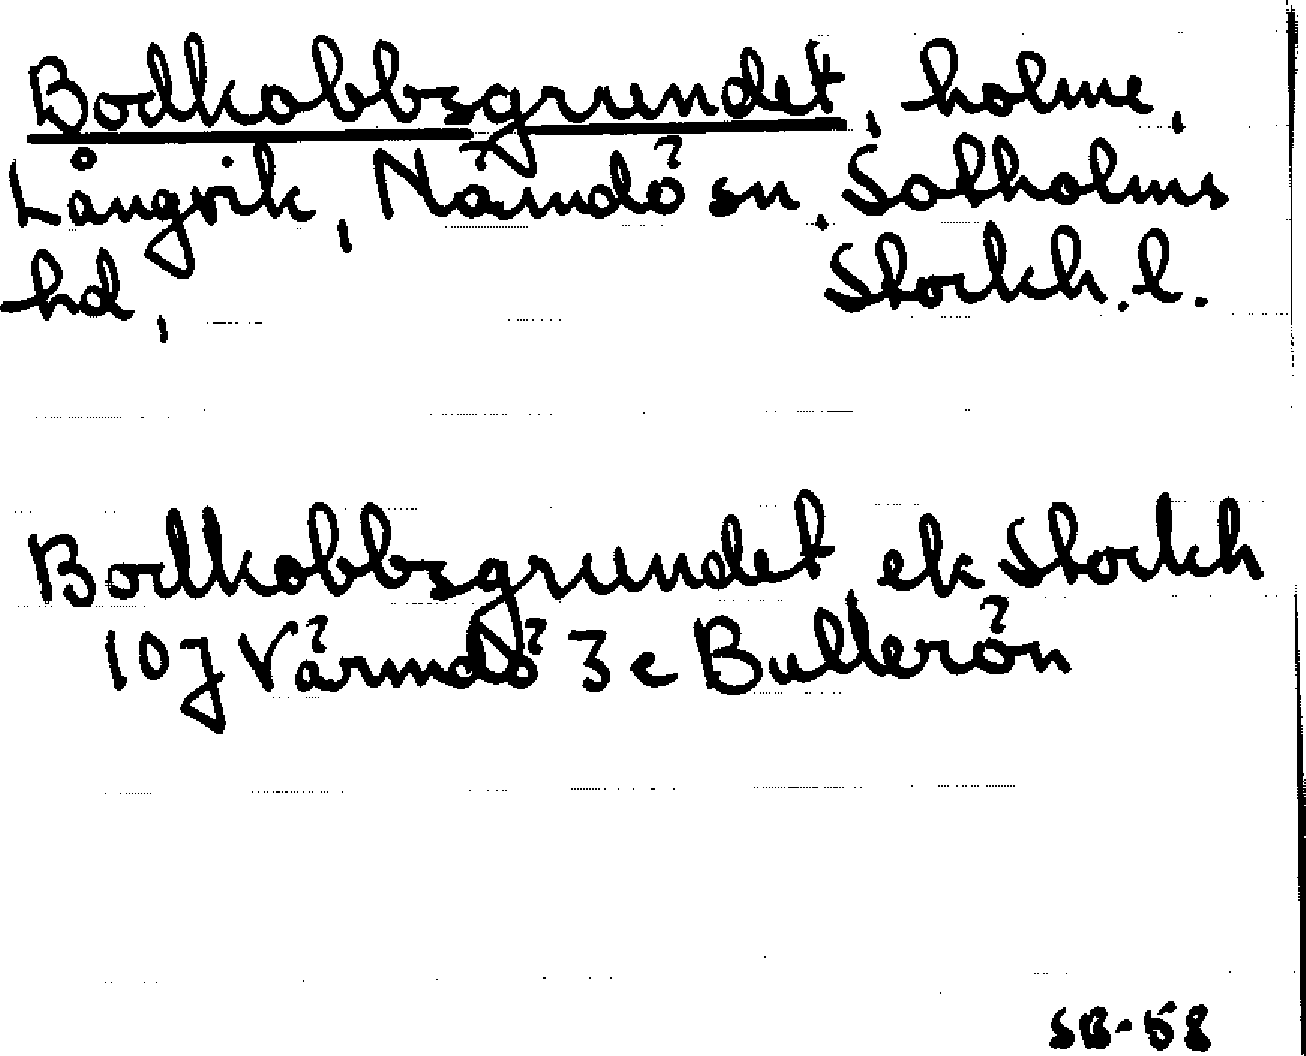 Bodkobbsgrundet, holme,
Långvik, Nämdö sn. Sotholms
hd, Stockh. l.
Bodkobbsgrundet ek Stockh
10J Värmdö 3c Bullerön
SB-58